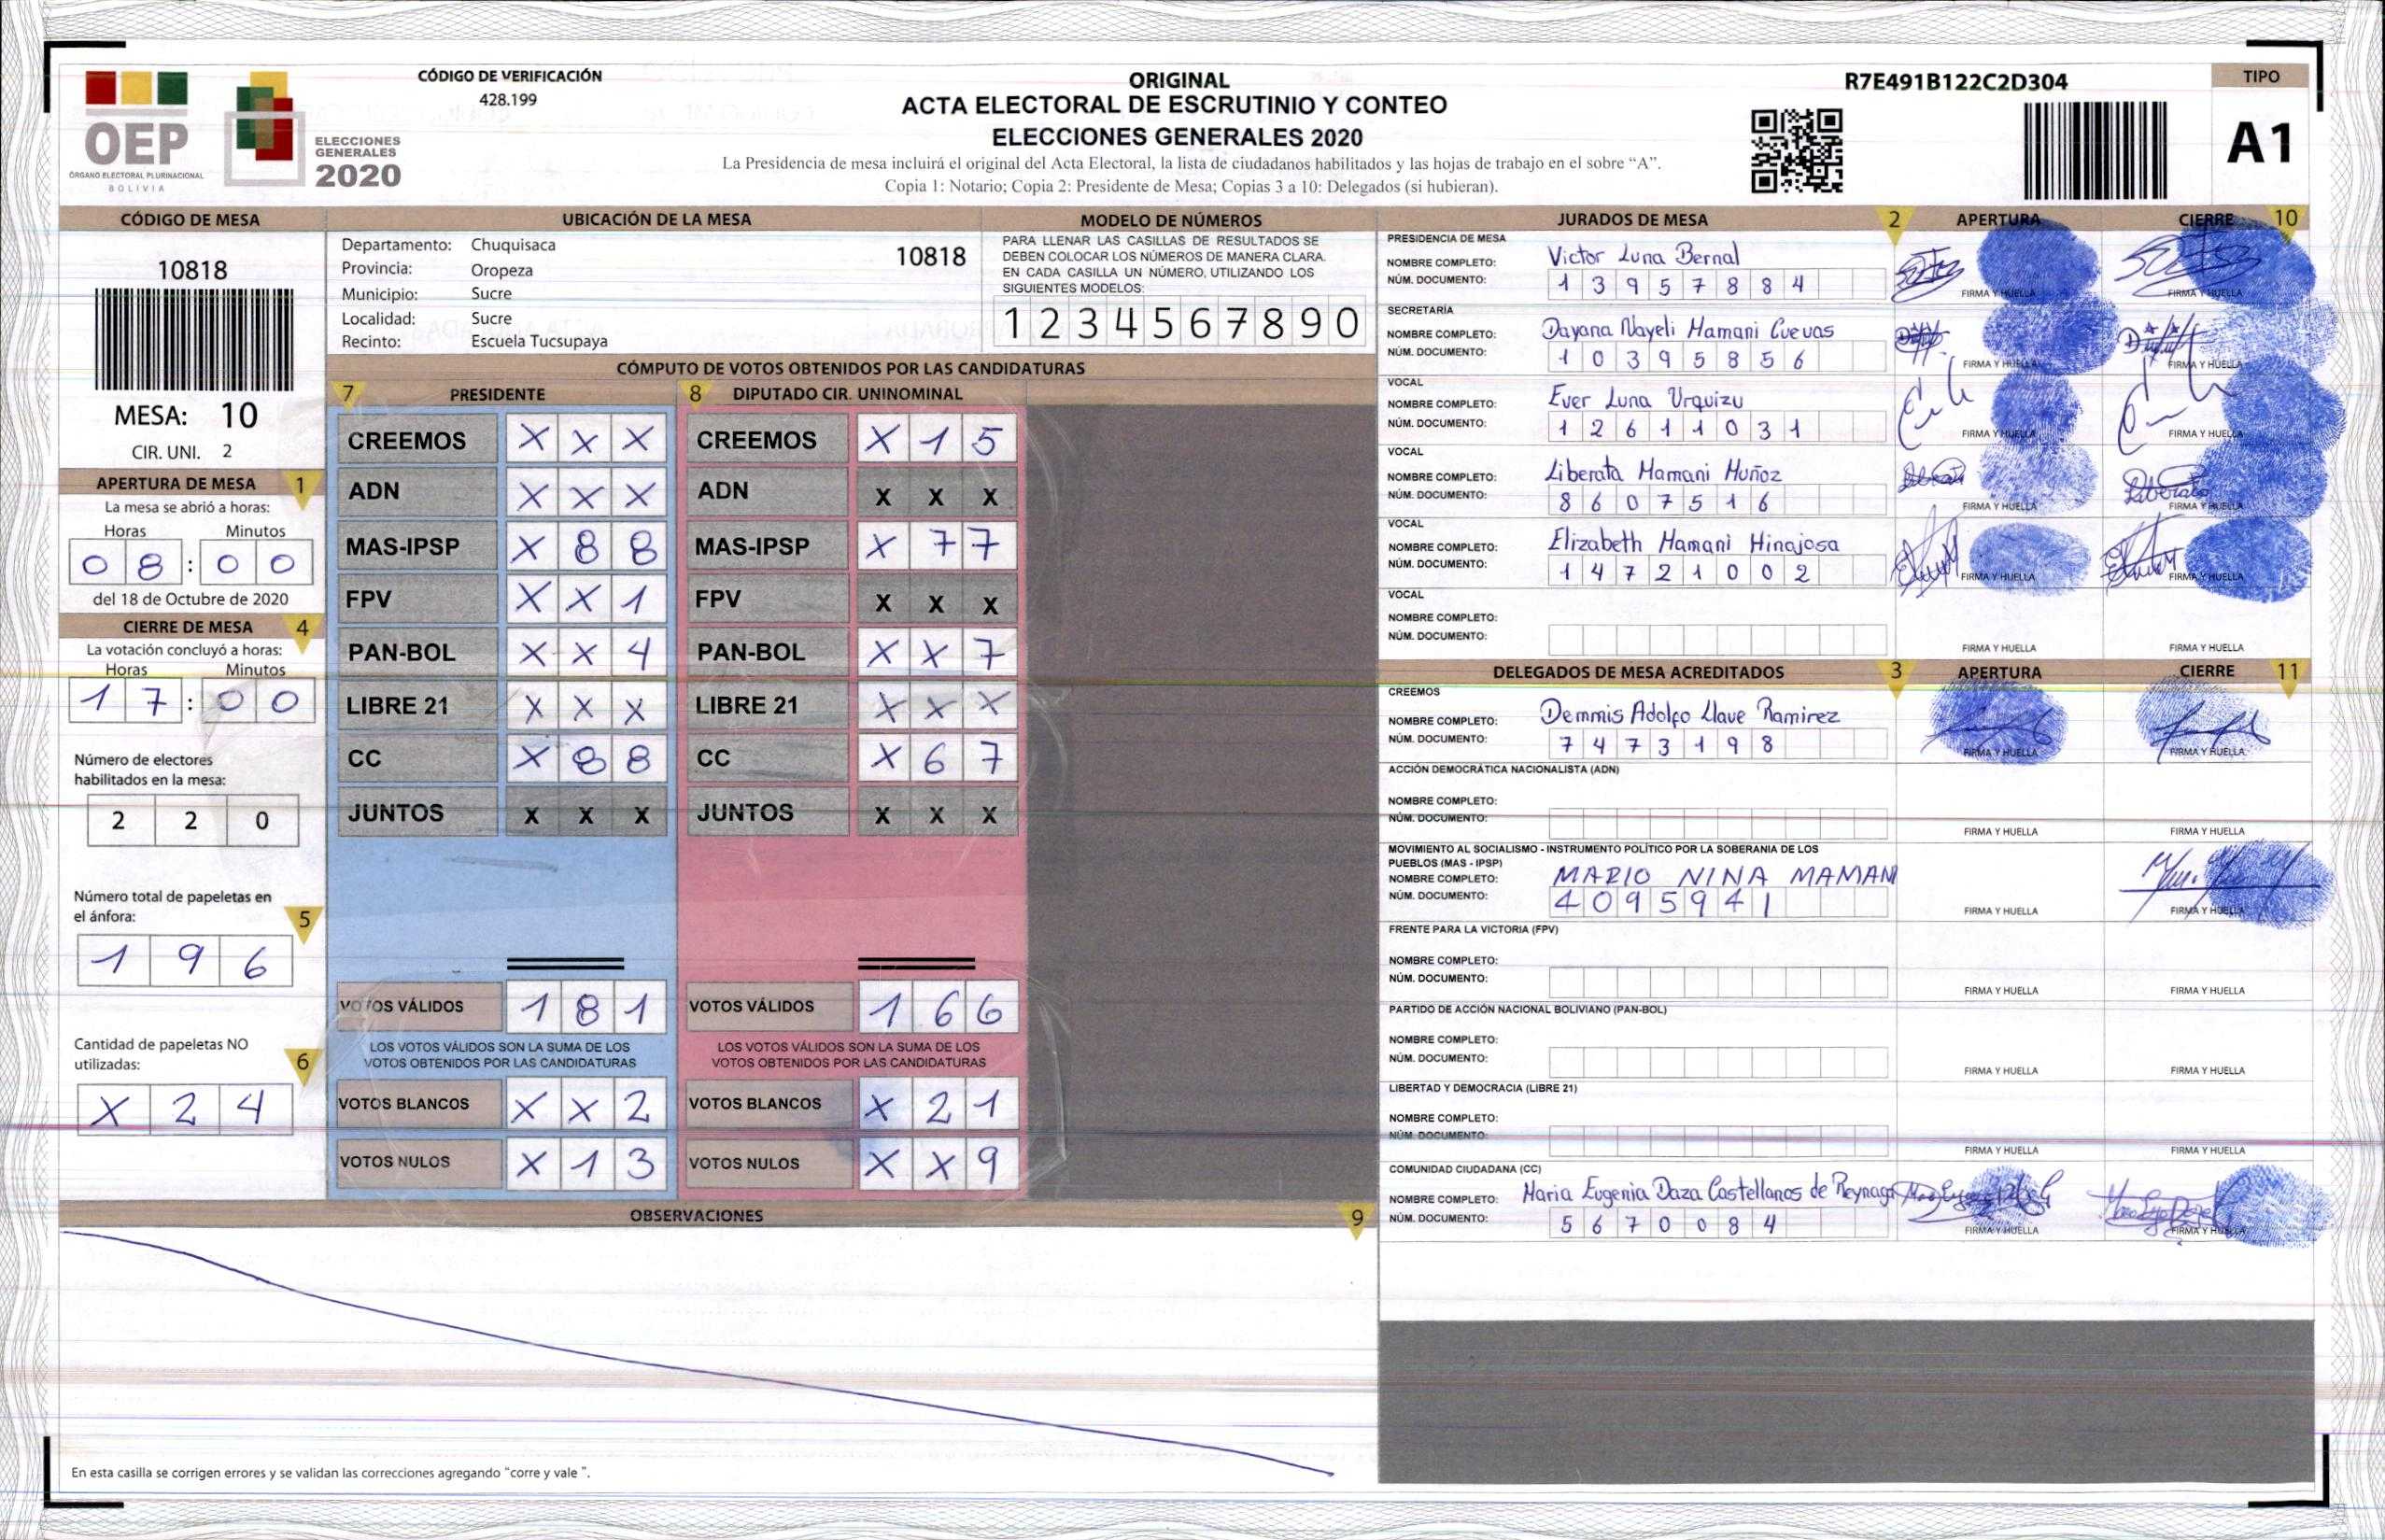 OEP
ÓRGANO ELECTORAL PLURINACIONAL
BOLIVIA
ELECCIONES
GENERALES
2020
CÓDIGO DE VERIFICACIÓN
428.199
ORIGINAL
ACTA ELECTORAL DE ESCRUTINIO Y CONTEO
ELECCIONES GENERALES 2020
La Presidencia de mesa incluirá el original del Acta Electoral, la lista de ciudadanos habilitados y las hojas de trabajo en el sobre “A”.
Copia 1: Notario; Copia 2: Presidente de Mesa; Copias 3 a 10: Delegados (si hubieran).
R7E491B122C2D304
TIPO
A1
CÓDIGO DE MESA
10818
MESA: 10
CIR. UNI. 2
APERTURA DE MESA 1
La mesa se abrió a horas:
Horas Minutos
0 8 : 0 0
del 18 de Octubre de 2020
CIERRE DE MESA 4
La votación concluyó a horas:
Horas Minutos
1 7 : 0 0
Número de electores
habilitados en la mesa:
2 2 0
Número total de papeletas en
el ánfora: 5
1 9 6
Cantidad de papeletas NO
utilizadas: 6
X 2 4
UBICACIÓN DE LA MESA
Departamento: Chuquisaca 10818
Provincia: Oropeza
Municipio: Sucre
Localidad: Sucre
Recinto: Escuela Tucsupaya
MODELO DE NÚMEROS
PARA LLENAR LAS CASILLAS DE RESULTADOS SE
DEBEN COLOCAR LOS NÚMEROS DE MANERA CLARA.
EN CADA CASILLA UN NÚMERO, UTILIZANDO LOS
SIGUIENTES MODELOS:
1 2 3 4 5 6 7 8 9 0
CÓMPUTO DE VOTOS OBTENIDOS POR LAS CANDIDATURAS
7 PRESIDENTE 8 DIPUTADO CIR. UNINOMINAL
CREEMOS X X X CREEMOS X 1 5
ADN X X X ADN X X X
MAS-IPSP X 8 8 MAS-IPSP X 7 7
FPV X X 1 FPV X X X
PAN-BOL X X 4 PAN-BOL X X 7
LIBRE 21 X X X LIBRE 21 X X X
CC X 8 8 CC X 6 7
JUNTOS X X X JUNTOS X X X
VOTOS VÁLIDOS 1 8 1 VOTOS VÁLIDOS 1 6 6
LOS VOTOS VÁLIDOS SON LA SUMA DE LOS LOS VOTOS VÁLIDOS SON LA SUMA DE LOS
VOTOS OBTENIDOS POR LAS CANDIDATURAS VOTOS OBTENIDOS POR LAS CANDIDATURAS
VOTOS BLANCOS X X 2 VOTOS BLANCOS X 2 1
VOTOS NULOS X 1 3 VOTOS NULOS X X 9
OBSERVACIONES 9
En esta casilla se corrigen errores y se validan las correcciones agregando “corre y vale ”.
JURADOS DE MESA 2 APERTURA CIERRE 10
PRESIDENCIA DE MESA
NOMBRE COMPLETO: Victor Luna Bernal
NÚM. DOCUMENTO: 1 3 9 5 7 8 8 4
FIRMA Y HUELLA FIRMA Y HUELLA
SECRETARÍA
NOMBRE COMPLETO: Dayana Nayeli Mamani Cuevas
NÚM. DOCUMENTO: 1 0 3 9 5 8 5 6
FIRMA Y HUELLA FIRMA Y HUELLA
VOCAL
NOMBRE COMPLETO: Ever Luna Urquizu
NÚM. DOCUMENTO: 1 2 6 1 1 0 3 1
FIRMA Y HUELLA FIRMA Y HUELLA
VOCAL
NOMBRE COMPLETO: Liberata Mamani Muñoz
NÚM. DOCUMENTO: 8 6 0 7 5 1 6
FIRMA Y HUELLA FIRMA Y HUELLA
VOCAL
NOMBRE COMPLETO: Elizabeth Mamani Hinojosa
NÚM. DOCUMENTO: 1 4 7 2 1 0 0 2
FIRMA Y HUELLA FIRMA Y HUELLA
VOCAL
NOMBRE COMPLETO:
NÚM. DOCUMENTO:
FIRMA Y HUELLA FIRMA Y HUELLA
DELEGADOS DE MESA ACREDITADOS 3 APERTURA CIERRE 11
CREEMOS
NOMBRE COMPLETO: Demmis Adolfo Llave Ramirez
NÚM. DOCUMENTO: 7 4 7 3 1 9 8
FIRMA Y HUELLA FIRMA Y HUELLA
ACCIÓN DEMOCRÁTICA NACIONALISTA (ADN)
NOMBRE COMPLETO:
NÚM. DOCUMENTO:
FIRMA Y HUELLA FIRMA Y HUELLA
MOVIMIENTO AL SOCIALISMO - INSTRUMENTO POLÍTICO POR LA SOBERANIA DE LOS
PUEBLOS (MAS - IPSP)
NOMBRE COMPLETO: MARIO NINA MAMAN
NÚM. DOCUMENTO: 4 0 9 5 9 4 1
FIRMA Y HUELLA FIRMA Y HUELLA
FRENTE PARA LA VICTORIA (FPV)
NOMBRE COMPLETO:
NÚM. DOCUMENTO:
FIRMA Y HUELLA FIRMA Y HUELLA
PARTIDO DE ACCIÓN NACIONAL BOLIVIANO (PAN-BOL)
NOMBRE COMPLETO:
NÚM. DOCUMENTO:
FIRMA Y HUELLA FIRMA Y HUELLA
LIBERTAD Y DEMOCRACIA (LIBRE 21)
NOMBRE COMPLETO:
NÚM. DOCUMENTO:
FIRMA Y HUELLA FIRMA Y HUELLA
COMUNIDAD CIUDADANA (CC)
NOMBRE COMPLETO: Maria Eugenia Daza Castellanos de Reynaga
NÚM. DOCUMENTO: 5 6 7 0 0 8 4
FIRMA Y HUELLA FIRMA Y HUELLA